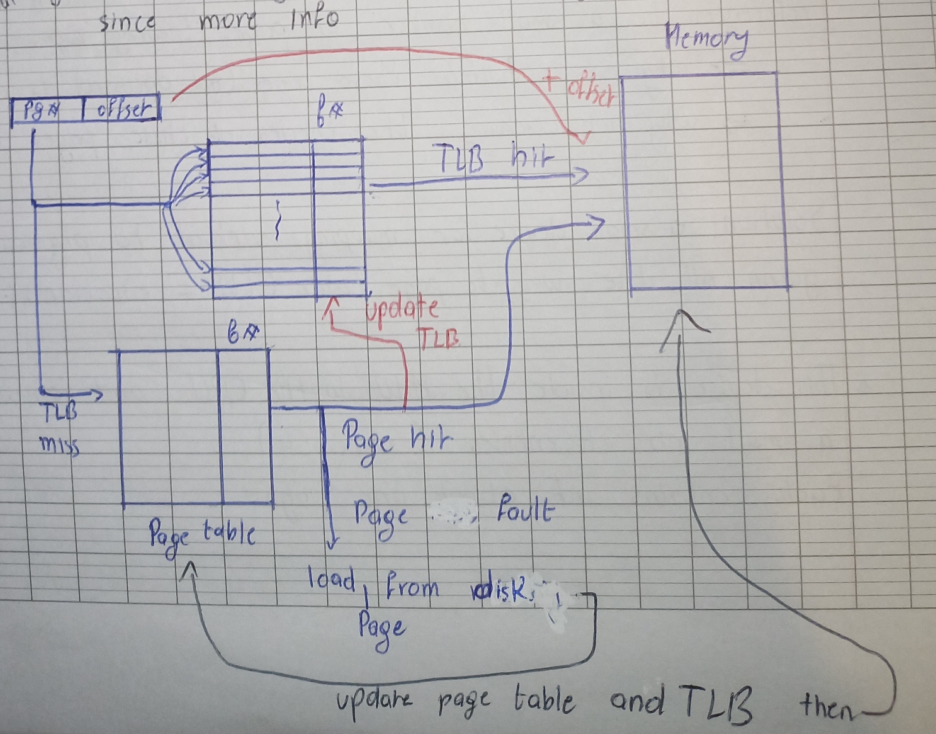 since more Info
Memory
+ offset
pg# offset
f#
TLB hit
update
TLB
f#
TLB
miss
Page hit
Page fault
Page table
load from disk
Page
update page table and TLB then